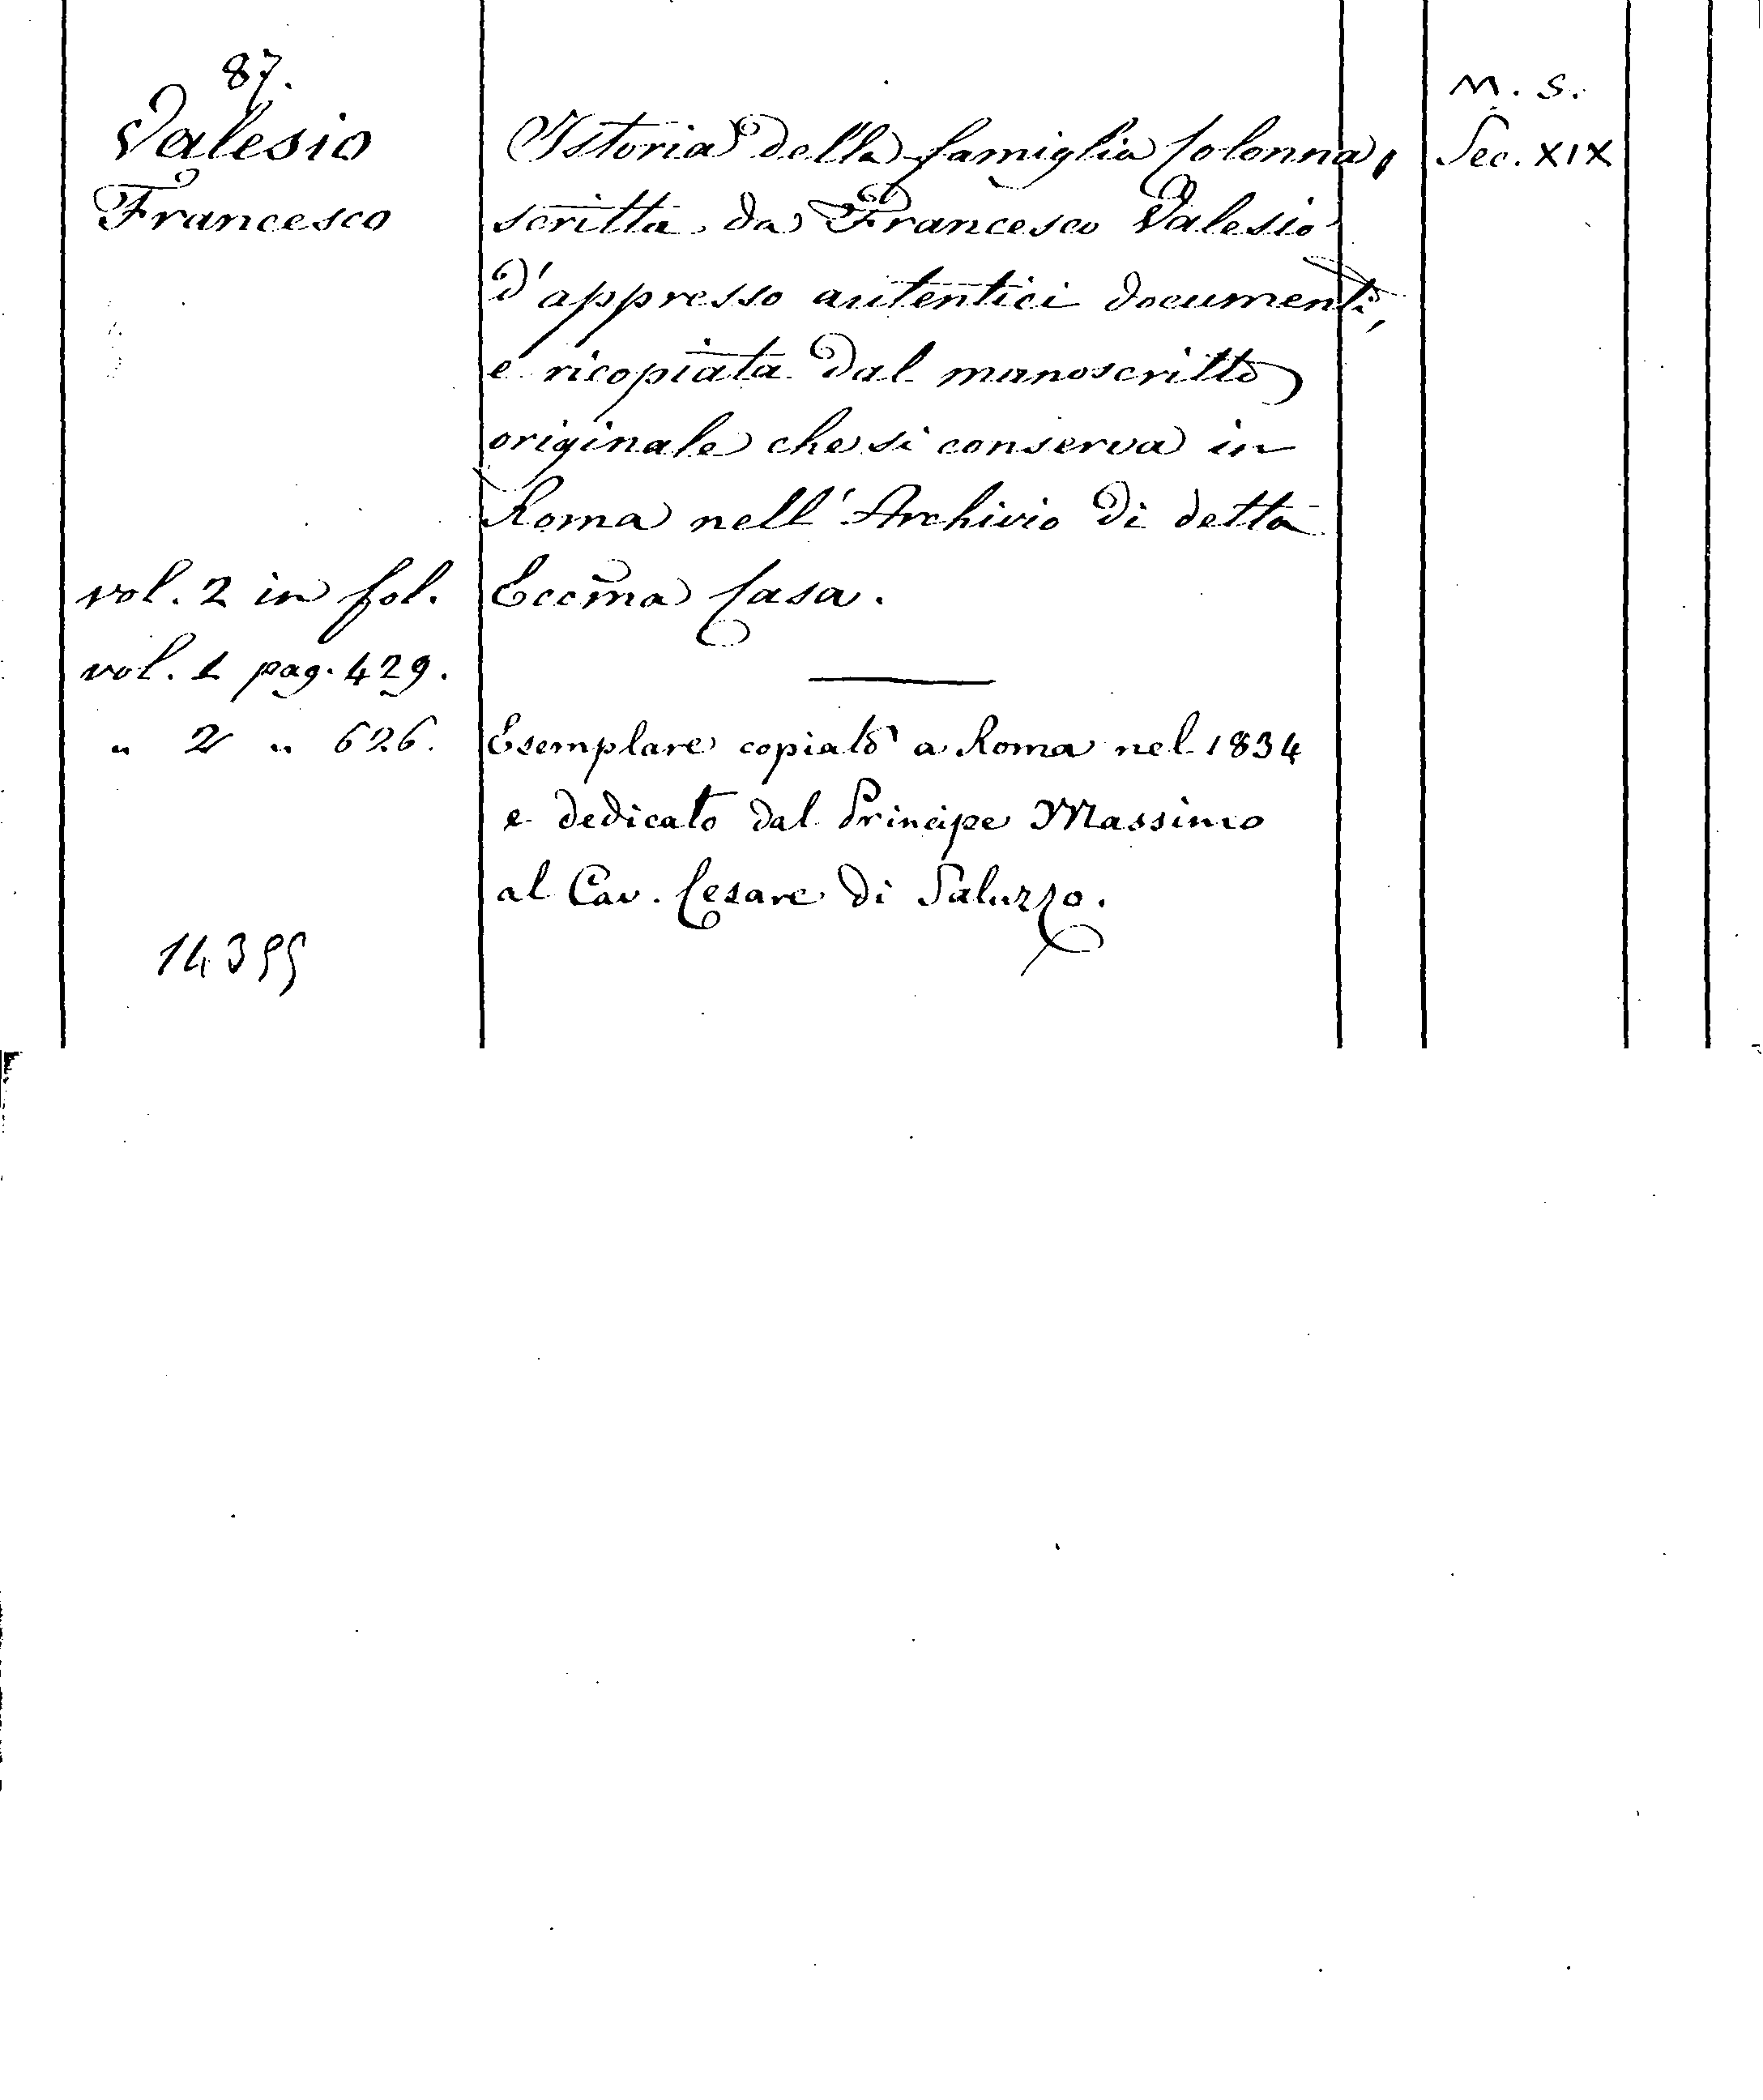 87.
Valesio
Francesco
Istoria della famiglia Colonna,
scritta da Francesco Valesio
d'appresso autentici documenti,
e ricopiata dal manoscritto
originale che si conserva in
Roma nell' Archivio di detta
Eccm̃a Casa.
vol. 2 in fol.
vol. 1 pag. 429.
" 2 " 626.
Esemplare copiato a Roma nel 1834
e dedicato dal Principe Massimo
al Cav. Cesare di Saluzzo.
M. S.
Sec. XIX